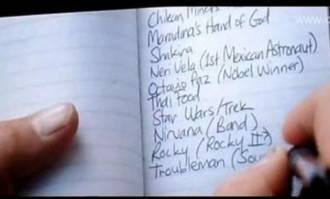 www.c
Chilean Miners
Maradona's Hand of God
Shakira
Neri Vela (1st Mexican Astronaut)
Octavio Paz (Nobel Winner)
Thai Food
Star Wars/Trek
Nirvana (Band)
Rocky (Rocky II?)
Troubleman (Sou